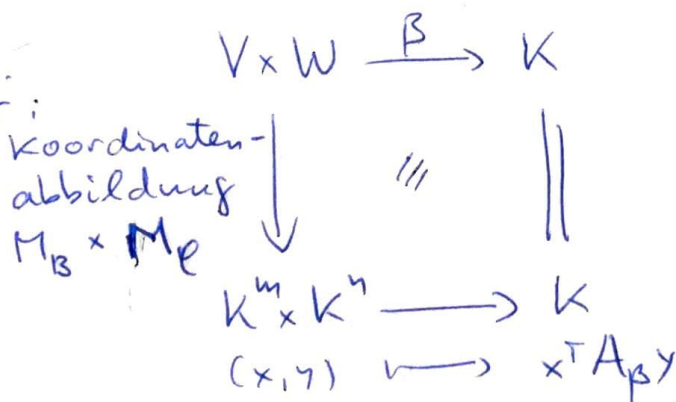 V × W —β→ K
Koordinaten-
abbildung
M_B × M_C
K^m × K^n ⟶ K
(x, y) ⟼ x^T A_β y